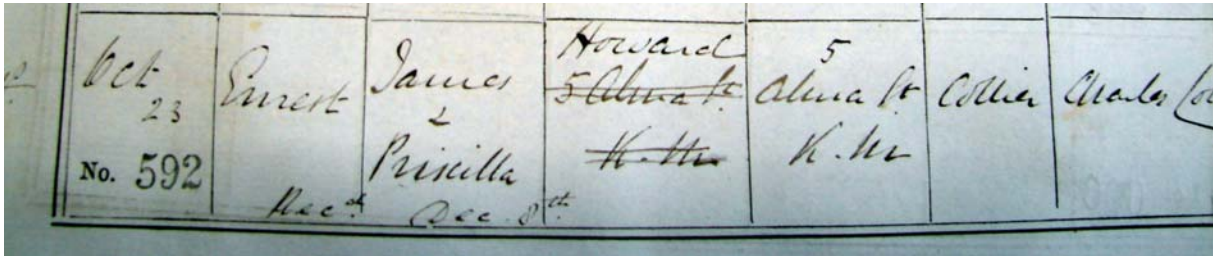 Oct
23
No. 592
Ernest
James
&
Priscilla
Howard
5 Alma St.
K. Hr
5
Alma St
K. Hr
Collier
Charles
Rec.d Dec. 8th